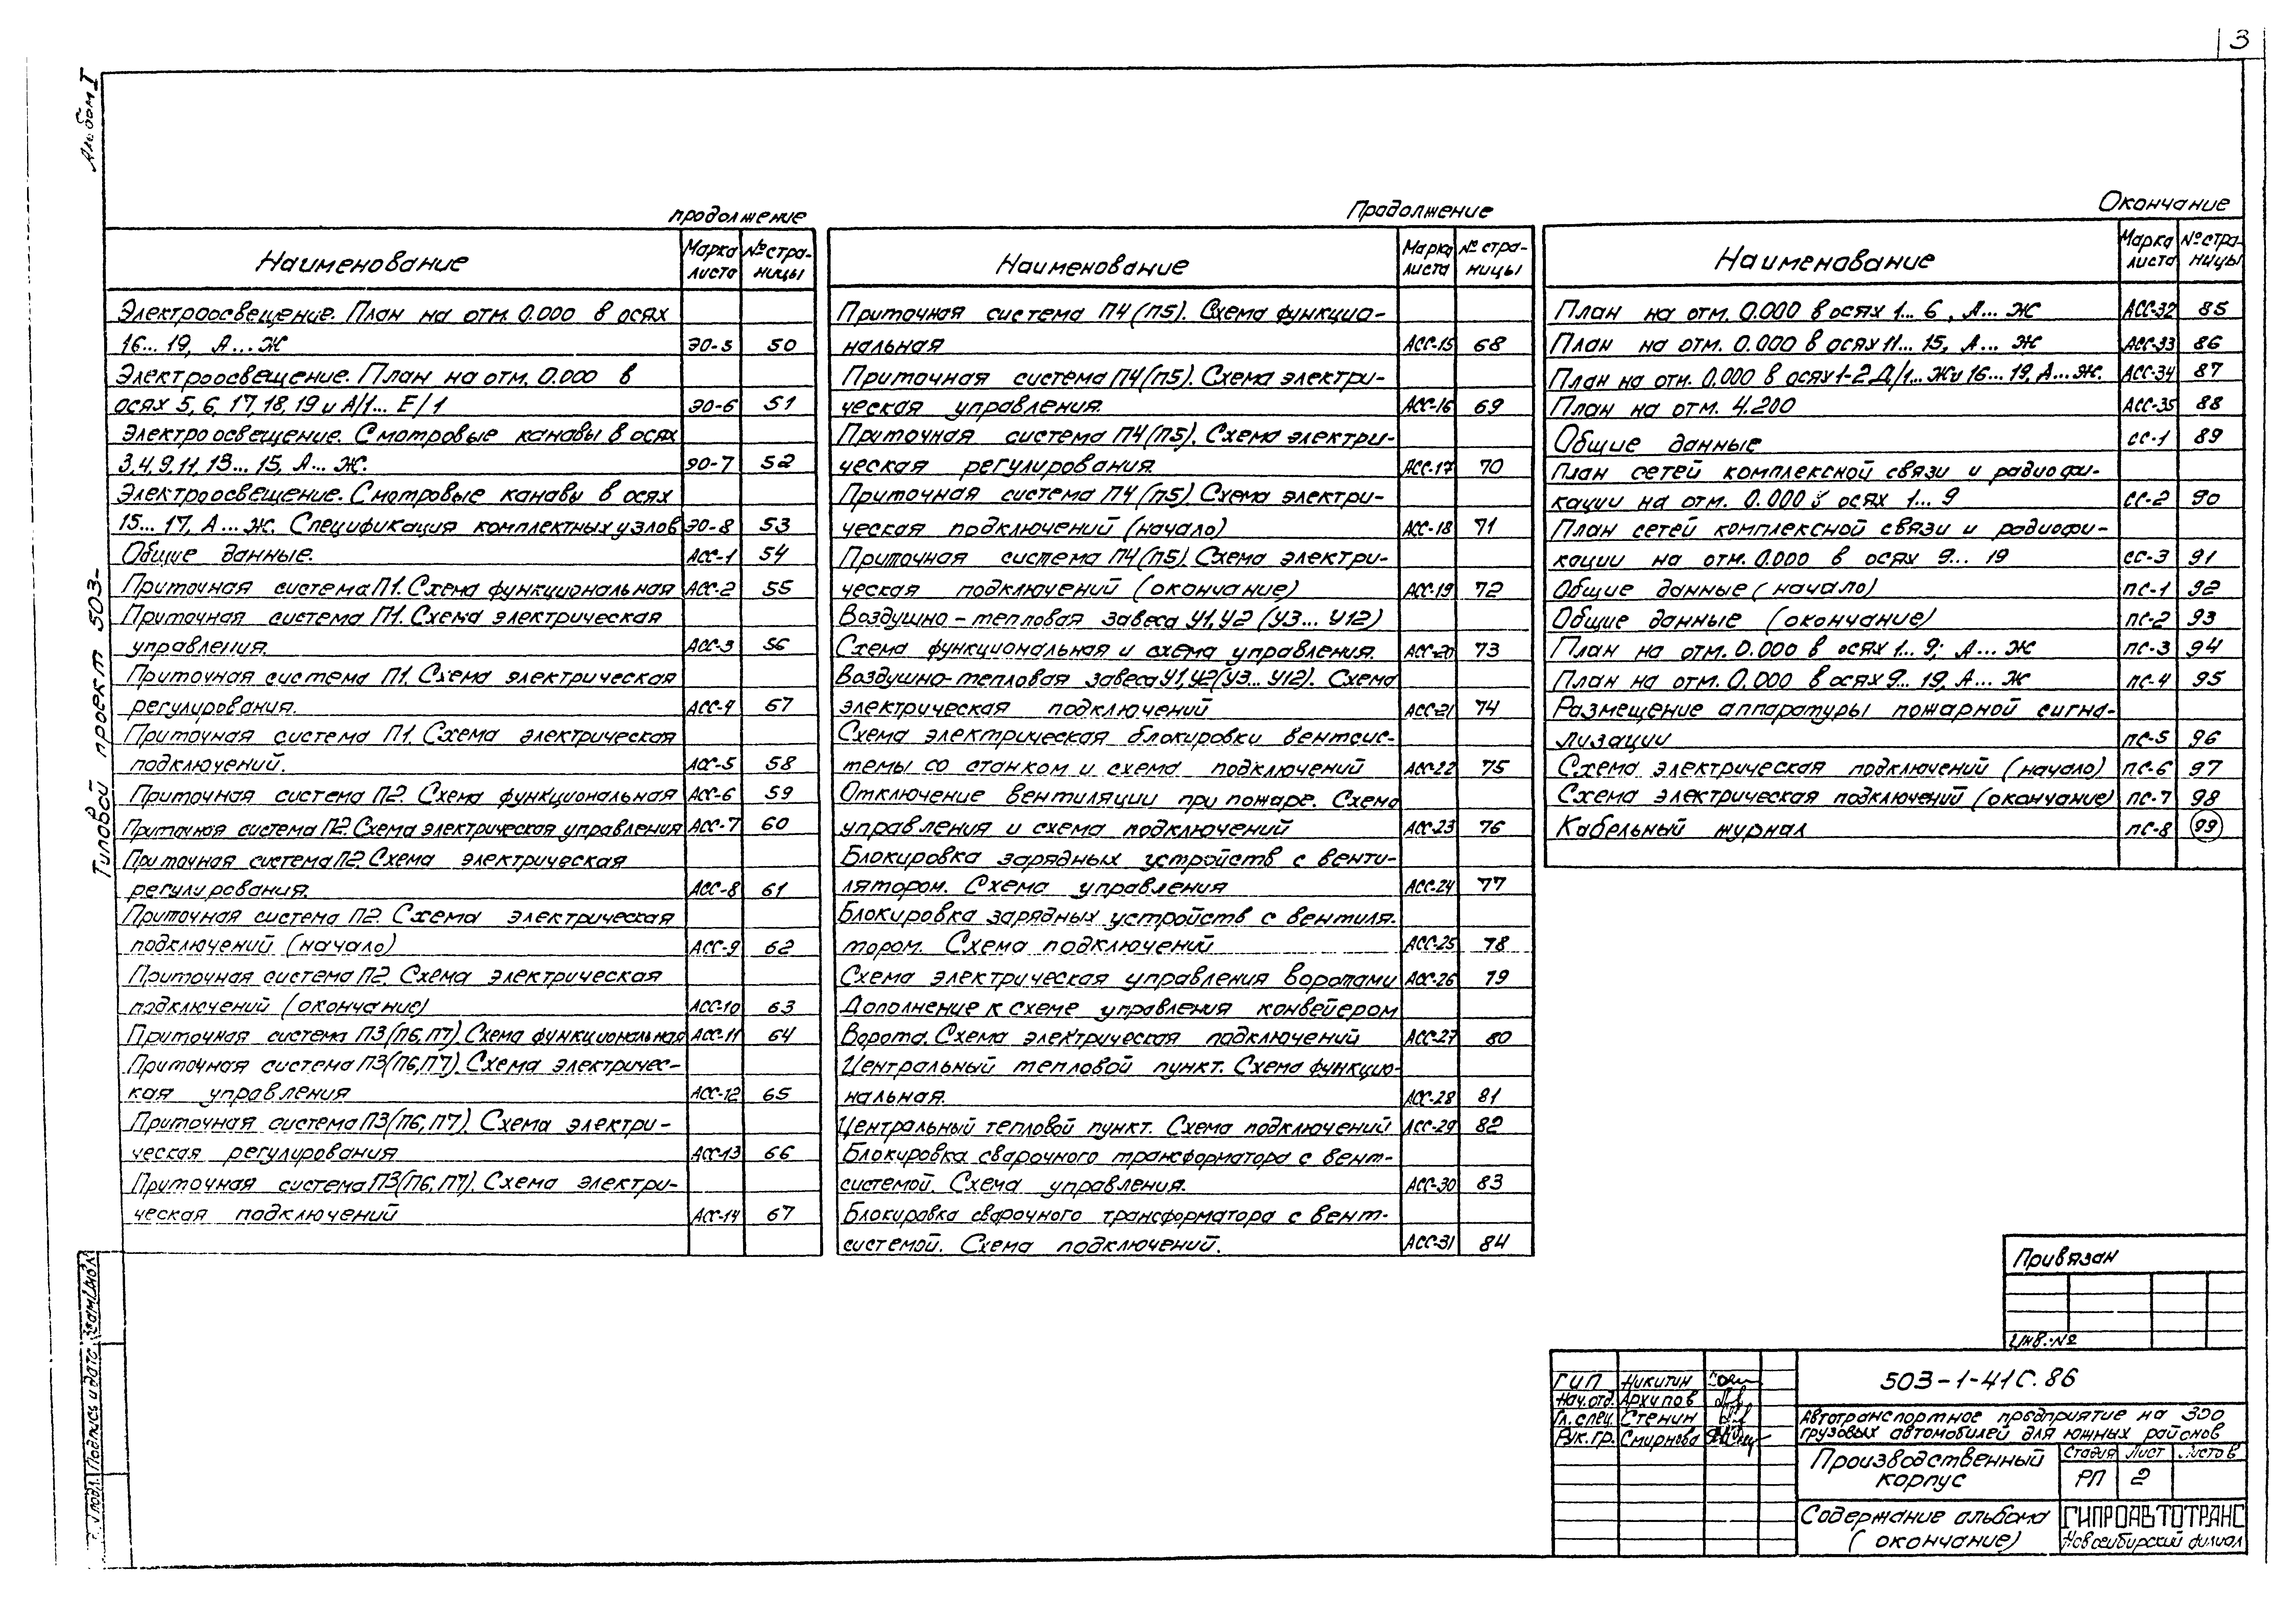 3
Альбом I
Типовой проект 503-
продолжение
Наименование Марка листа № страницы
Электроосвещение. План на отм. 0.000 в осях
16... 19, А... Ж ЭО-5 50
Электроосвещение. План на отм. 0.000 в
осях 5, 6, 17, 18, 19 и А/1... Е/1 ЭО-6 51
Электроосвещение. Смотровые канавы в осях
3,4,9,11,13... 15, А... Ж. ЭО-7 52
Электроосвещение. Смотровые канавы в осях
15... 17, А... Ж. Спецификация комплектных узлов ЭО-8 53
Общие данные. АСС-1 54
Приточная система П1. Схема функциональная АСС-2 55
Приточная система П1. Схема электрическая
управления. АСС-3 56
Приточная система П1. Схема электрическая
регулирования. АСС-4 67
Приточная система П1. Схема электрическая
подключений. АСС-5 58
Приточная система П2. Схема функциональная АСС-6 59
Приточная система П2. Схема электрическая управления АСС-7 60
Приточная система П2. Схема электрическая
регулирования. АСС-8 61
Приточная система П2. Схема электрическая
подключений (начало) АСС-9 62
Приточная система П2. Схема электрическая
подключений (окончание) АСС-10 63
Приточная система П3(П6,П7). Схема функциональная АСС-11 64
Приточная система П3(П6,П7). Схема электричес-
кая управления АСС-12 65
Приточная система П3(П6,П7). Схема электри-
ческая регулирования АСС-13 66
Приточная система П3(П6,П7). Схема электри-
ческая подключений АСС-14 67
Продолжение
Наименование Марка листа № стра-ницы
Приточная система П4 (П5). Схема функцио-
нальная АСС-15 68
Приточная система П4(П5). Схема электри-
ческая управления. АСС-16 69
Приточная система П4(П5). Схема электри-
ческая регулирования. АСС-17 70
Приточная система П4(П5). Схема электри-
ческая подключений (начало) АСС-18 71
Приточная система П4(П5). Схема электри-
ческая подключений (окончание) АСС-19 72
Воздушно-тепловая завеса У1,У2 (У3... У12)
Схема функциональная и схема управления. АСС-20 73
Воздушно-тепловая завеса У1,У2(У3... У12). Схема
электрическая подключений АСС-21 74
Схема электрическая блокировки вентсис-
темы со станком и схема подключений АСС-22 75
Отключение вентиляции при пожаре. Схема
управления и схема подключений АСС-23 76
Блокировка зарядных устройств с венти-
лятором. Схема управления АСС-24 77
Блокировка зарядных устройств с вентиля-
тором. Схема подключений АСС-25 78
Схема электрическая управления воротами АСС-26 79
Дополнение к схеме управления конвейером
Ворота. Схема электрическая подключений АСС-27 80
Центральный тепловой пункт. Схема функцио-
нальная. АСС-28 81
Центральный тепловой пункт. Схема подключений АСС-29 82
Блокировка сварочного трансформатора с вент-
системой. Схема управления. АСС-30 83
Блокировка сварочного трансформатора с вент-
системой. Схема подключений. АСС-31 84
Окончание
Наименование Марка листа № стра-ницы
План на отм. 0.000 в осях 1... 6, А... Ж АСС-32 85
План на отм. 0.000 в осях 11... 15, А... Ж АСС-33 86
План на отм. 0.000 в осях 1-2 Д/1... Ж и 16... 19, А... Ж. АСС-34 87
План на отм. 4.200 АСС-35 88
Общие данные СС-1 89
План сетей комплексной связи и радиофи-
кации на отм. 0.000 в осях 1... 9 СС-2 90
План сетей комплексной связи и радиофи-
кации на отм. 0.000 в осях 9... 19 СС-3 91
Общие данные (начало) ПС-1 92
Общие данные (окончание) ПС-2 93
План на отм. 0.000 в осях 1... 9; А... Ж ПС-3 94
План на отм. 0.000 в осях 9... 19, А... Ж ПС-4 95
Размещение аппаратуры пожарной сигна-
лизации ПС-5 96
Схема электрическая подключений (начало) ПС-6 97
Схема электрическая подключений (окончание) ПС-7 98
Кабельный журнал ПС-8 99
Привязан
Инв. №
ГИП Никитин
Нач. отд. Архипов
Гл. спец. Стенин
Рук. гр. Смирнова
503-1-41С.86
Автотранспортное предприятие на 300
грузовых автомобилей для южных районов
Производственный
корпус
Стадия Лист Листов
РП 2
Содержание альбома
(окончание)
ГИПРОАВТОТРАНС
Новосибирский филиал
Подпись и дата